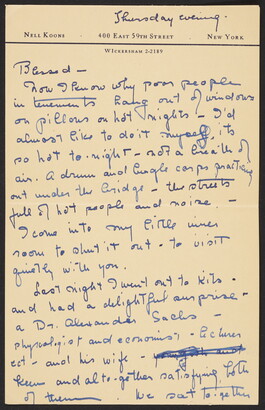 Thursday evening.
NELL KOONS 400 EAST 59TH STREET NEW YORK
WICKERSHAM 2-2189
Blessed -
Now I know why poor people
in tenements hang out of windows
on pillows on hot nights - I'd
almost like to do it myself, its
so hot to-night - not a breath of
air. A drum and bugle corps practicing
out under the bridge - the streets
full of hot people and noise. -
I come into my little inner
room to shut it out - to visit
quietly with you.
Last night I went out to Kits -
and had a delightful surprise -
a Dr. Alexander Sachs -
physiologist and economist - lecturer
ect - and his wife -
keen and altogether satisfying, both
of them. We sat together